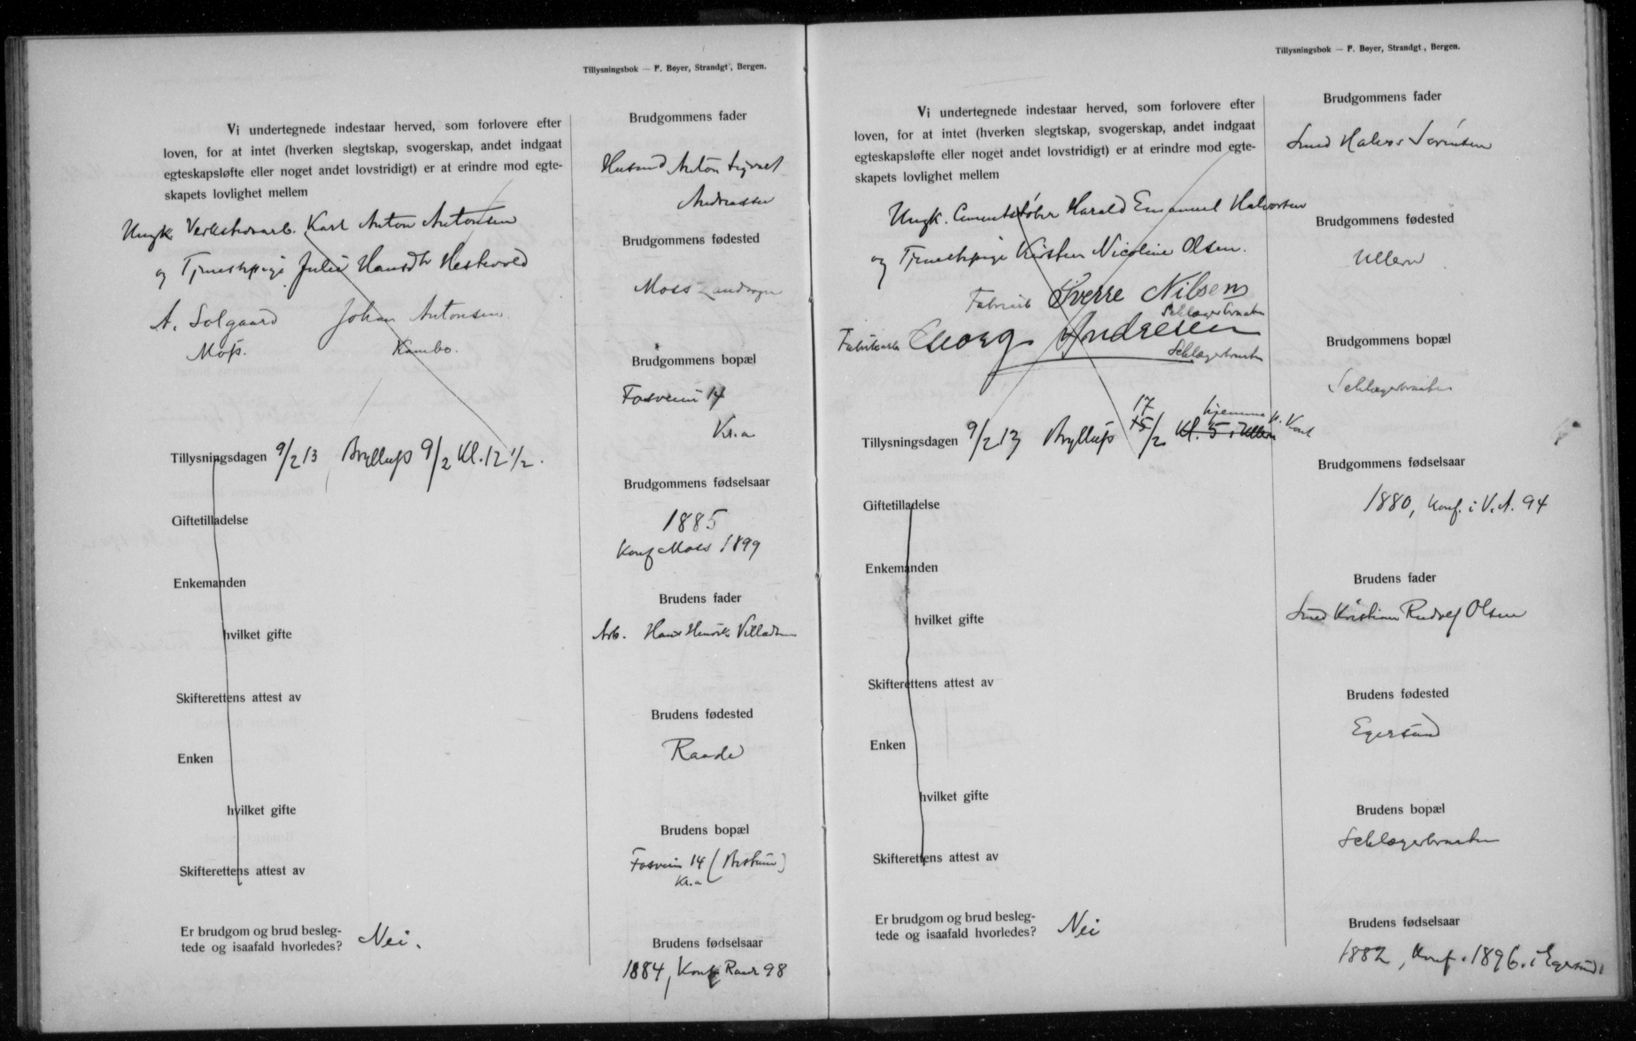 Tillysningsbok — F. Beyer, Strandgt., Bergen.
Vi undertegnede indestaar herved, som forlovere efter
loven, for at intet (hverken slegtskap, svogerskap, andet indgaat
egteskapsløfte eller noget andet lovstridigt) er at erindre mod egte-
skapets lovlighet mellem
Ungk. Verkstedsarb. Karl Anton Antonsen
og Tjenestepige Julie Hansdtr Hestvold
A. Solgaard Johan Antonsen
Moss. Kambo.
Tillysningsdagen 9/2 13 Bryllup 9/2 Kl. 12 1/2.
Giftetilladelse
Enkemanden
hvilket gifte
Skifterettens attest av
Enken
hvilket gifte
Skifterettens attest av
Er brudgom og brud besleg-
tede og isaafald hvorledes? Nei.
Brudgommens fader
Anton
Andreassen
Brudgommens fødested
Moss Landsogn
Brudgommens bopæl
Fosveien 14
Kr.a
Brudgommens fødselsaar
1885
Konf Moss 1899
Brudens fader
Arb. Hans Henrik Villadsen
Brudens fødested
Raade
Brudens bopæl
Fosveien 14
Kr.a
Brudens fødselsaar
1884, Konf Raade 98
Tillysningsbok — F. Beyer, Strandgt., Bergen.
Vi undertegnede indestaar herved, som forlovere efter
loven, for at intet (hverken slegtskap, svogerskap, andet indgaat
egteskapsløfte eller noget andet lovstridigt) er at erindre mod egte-
skapets lovlighet mellem
Ungk. Cementstøber Harald Emanuel Halvorsen
og Tjenestepige Kirsten Nicoline Olsen.
Sverre Nilsen
Georg Andresen
Tillysningsdagen 9/2 13 Bryllup 17 15/2 Kl. 5 i Ullern hjemme
Giftetilladelse
Enkemanden
hvilket gifte
Skifterettens attest av
Enken
hvilket gifte
Skifterettens attest av
Er brudgom og brud besleg-
tede og isaafald hvorledes? Nei
Brudgommens fader
Smed Halvor Sørensen
Brudgommens fødested
Ullern
Brudgommens bopæl
Brudgommens fødselsaar
1880, Konf. i V. A. 94
Brudens fader
Smed Kristian Rudolf Olsen
Brudens fødested
Egersund
Brudens bopæl
Brudens fødselsaar
1882, Konf. 1896. i Egersund